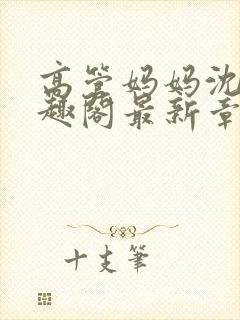 高管妈妈沈
趣阁最新章
十支笔